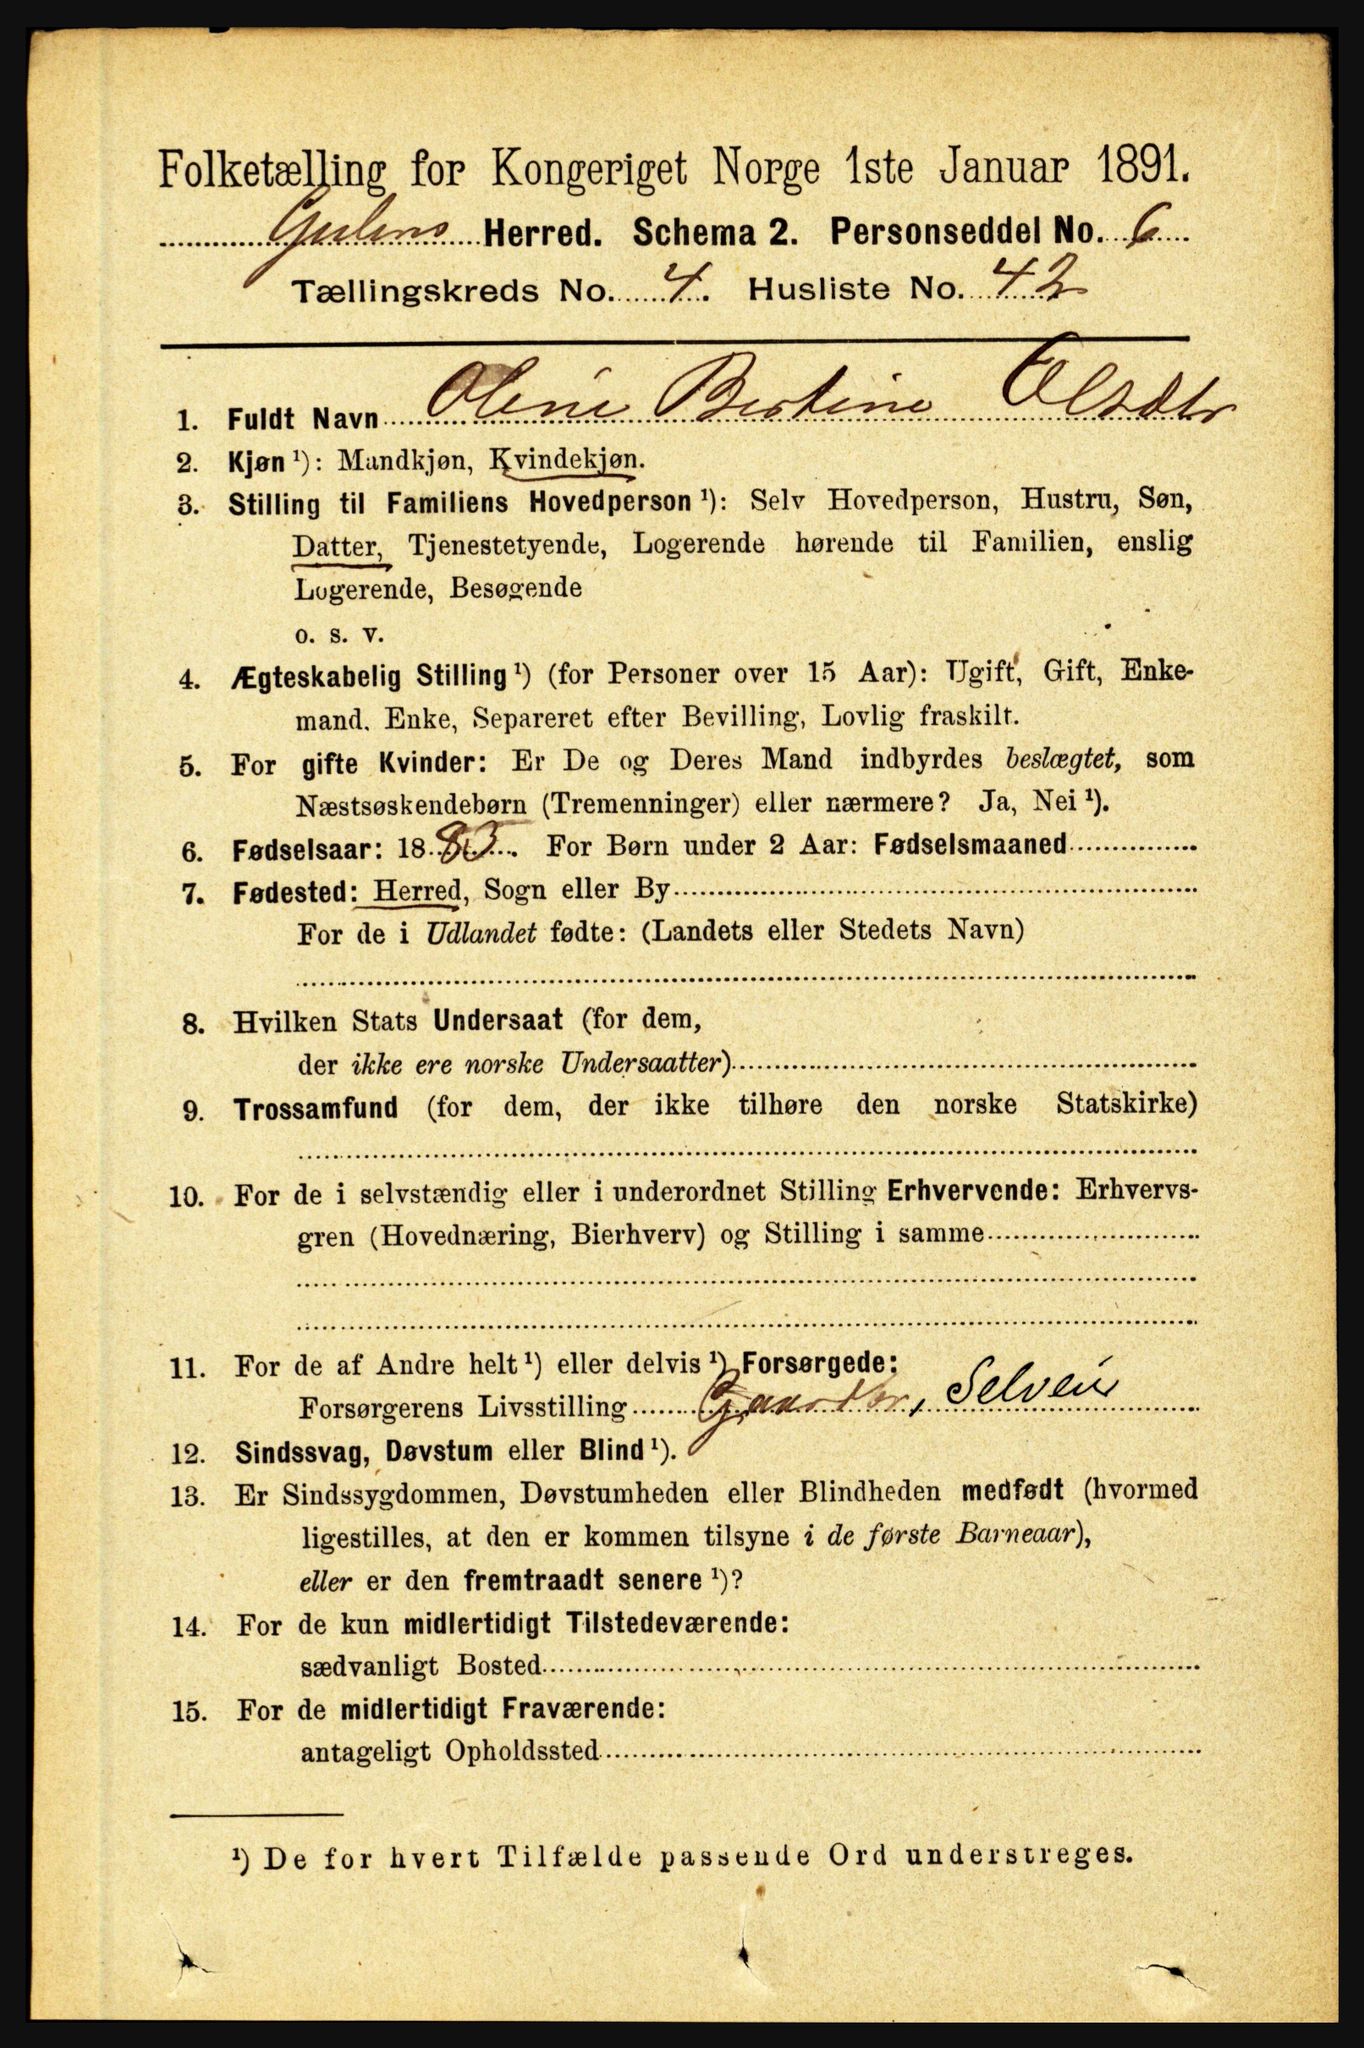 Folketælling for Kongeriget Norge 1ste Januar 1891.
Gulens Herred. Schema 2. Personseddel No. 6
Tællingskreds No. 4. Husliste No. 42
1. Fuldt Navn Oline Bertine Olsdtr
2. Kjøn ¹): Mandkjøn, Kvindekjøn.
3. Stilling til Familiens Hovedperson ¹): Selv Hovedperson, Hustru, Søn,
Datter, Tjenestetyende, Logerende hørende til Familien, enslig
Logerende, Besøgende
o. s. v.
4. Ægteskabelig Stilling ¹) (for Personer over 15 Aar): Ugift, Gift, Enke-
mand, Enke, Separeret efter Bevilling, Lovlig fraskilt.
5. For gifte Kvinder: Er De og Deres Mand indbyrdes beslægtet, som
Næstsøskendebørn (Tremenninger) eller nærmere? Ja, Nei ¹).
6. Fødselsaar: 1885. For Børn under 2 Aar: Fødselsmaaned
7. Fødested: Herred, Sogn eller By
For de i Udlandet fødte: (Landets eller Stedets Navn)
8. Hvilken Stats Undersaat (for dem,
der ikke ere norske Undersaatter)
9. Trossamfund (for dem, der ikke tilhøre den norske Statskirke)
10. For de i selvstændig eller i underordnet Stilling Erhvervende: Erhvervs-
gren (Hovednæring, Bierhverv) og Stilling i samme
11. For de af Andre helt ¹) eller delvis ¹) Forsørgede:
Forsørgerens Livsstilling Gaardbr, Selveier
12. Sindssvag, Døvstum eller Blind ¹).
13. Er Sindssygdommen, Døvstumheden eller Blindheden medfødt (hvormed
ligestilles, at den er kommen tilsyne i de første Barneaar),
eller er den fremtraadt senere ¹)?
14. For de kun midlertidigt Tilstedeværende:
sædvanligt Bosted
15. For de midlertidigt Fraværende:
antageligt Opholdssted
¹) De for hvert Tilfælde passende Ord understreges.